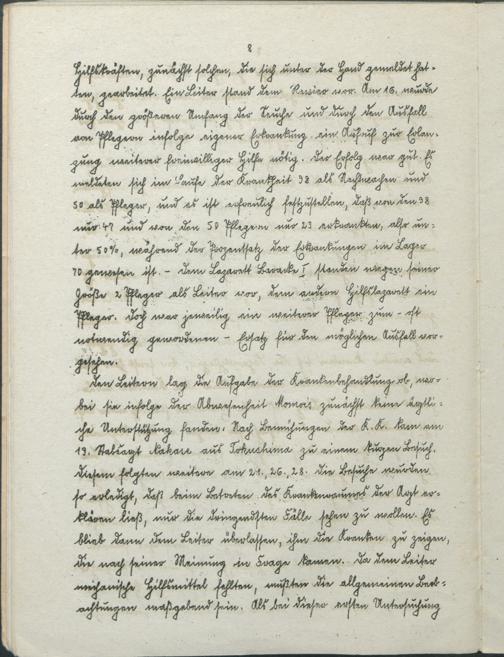 8
Hilfskräften, zunächst solchen, die sich unter der Hand gemeldet hat-
ten, gearbeitet. Ein Leiter stand dem Revier vor. Am 16. wurde
durch den größeren Umfang der Seuche und durch den Ausfall
von Pflegern infolge eigener Erkrankung ein Aufruf zur Erlan-
gung weiterer freiwilliger Hilfe nötig. Der Erfolg war gut. Es
meldeten sich im Laufe der Krankheit 98 als Nachtwachen und
50 als Pfleger, und es ist erfreulich festzustellen, daß von den 98
nur 47 und von den 50 Pflegern nur 23 erkrankten, also un-
ter 50%, während der Prozentsatz der Erkrankungen im Lager
70 gewesen ist. - Dem Lazarett Baracke I standen wegen seiner
Größe 2 Pfleger als Leiter vor, dem andern Hilfslazarett ein
Pfleger. Doch war jeweilig ein weiterer Pfleger zum - oft
notwendig gewordenen - Ersatz für den möglichen Ausfall vor-
gesehen.
Den Leitern lag die Aufgabe der Krankenbehandlung ob, wo-
bei sie infolge der Abwesenheit zunächst keine ärztli-
che Unterstützung fanden. Nach Bemühungen der K. K. kam am
19. Stabsarzt Nakare aus Tokushima zu einem kurzen Besuch.
Diesem folgten weitere am 21., 26., 28. Die Besuche wurden
so erledigt, daß beim Betreten des Krankenraumes der Arzt er-
klären ließ, nur die dringendsten Fälle sehen zu wollen. Es
blieb dann dem Leiter überlassen, ihm die Kranken zu zeigen,
die nach seiner Meinung in Frage kamen. Da dem Leiter
mechanische Hilfsmittel fehlten, mußten die allgemeinen Beob-
achtungen maßgebend sein. Als bei dieser ersten Untersuchung